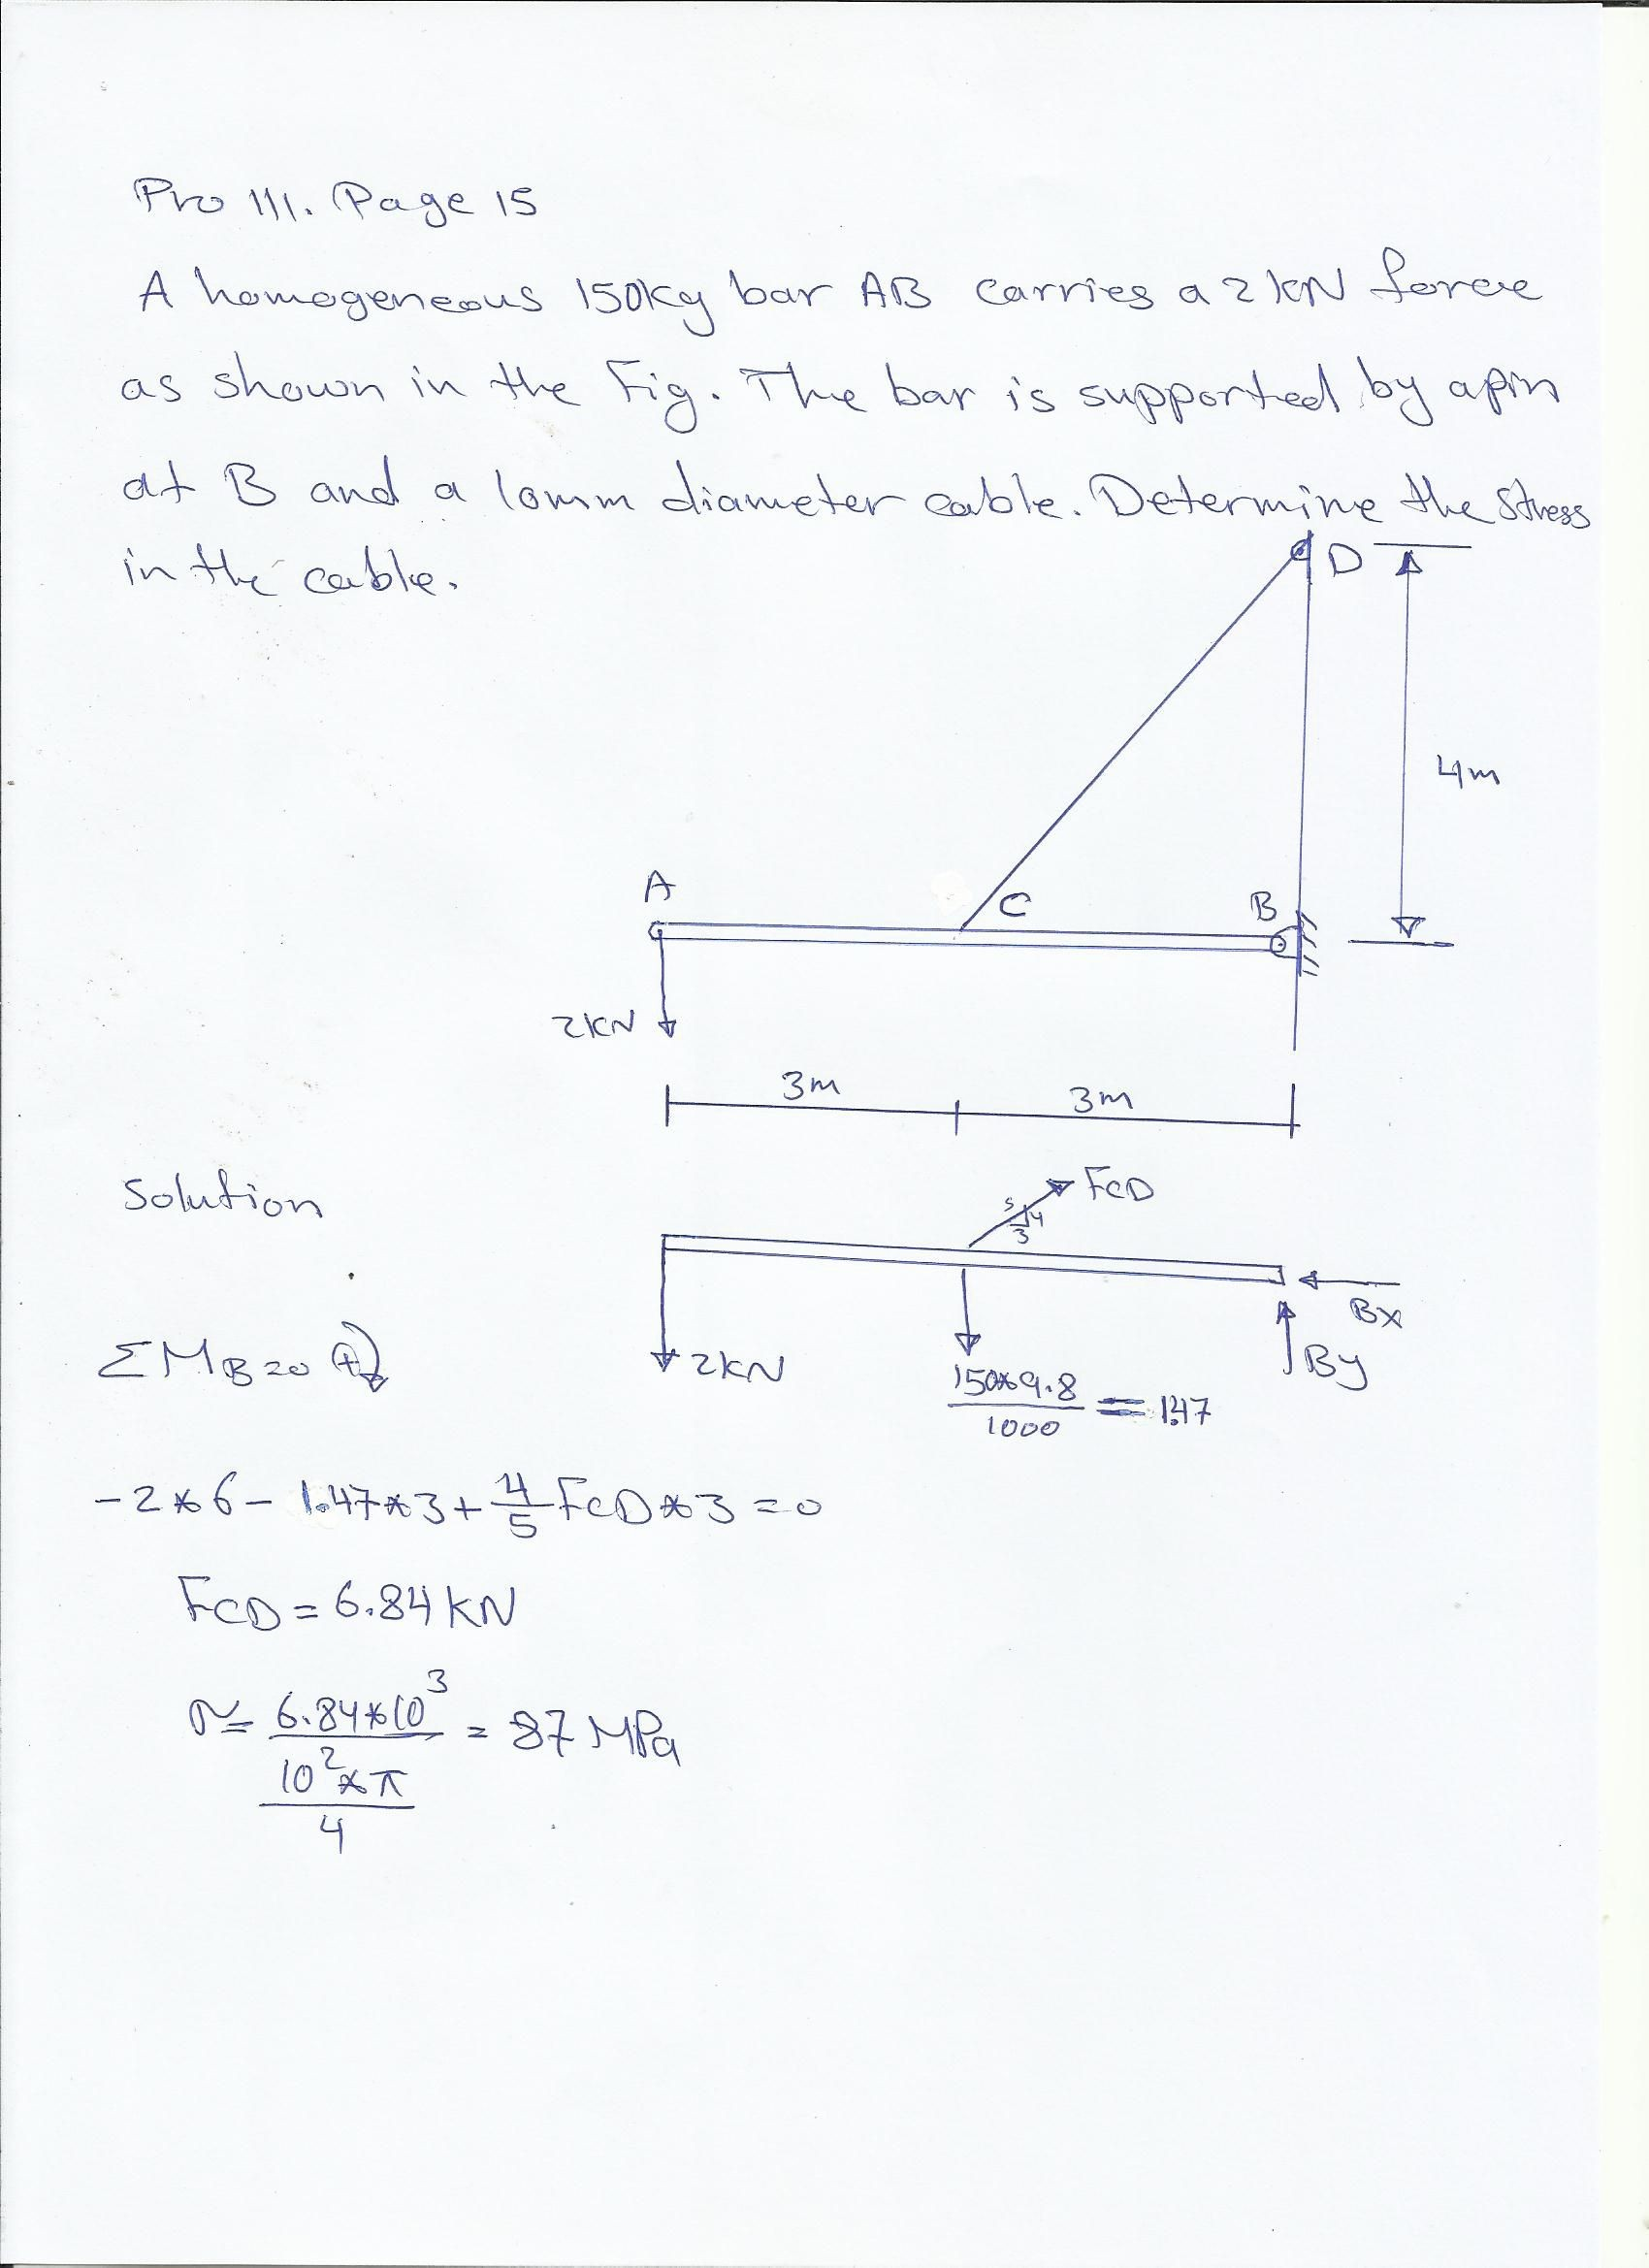 Pro 111. Page 15
A homogeneous 150kg bar AB carries a 2 kN force
as shown in the Fig. The bar is supported by a pin
at B and a 10mm diameter cable. Determine the stress
in the cable.
D
4m
A
C
B
2KN
3m
3m
Solution
FCD
5
4
3
Bx
ΣMB=0 +
2KN
150*9.8
1000
= 1.47
By
-2*6 - 1.47*3 + 4/5 FCD*3 = 0
FCD = 6.84 KN
σ = 6.84*10³ / (10²*π / 4) = 87 MPa